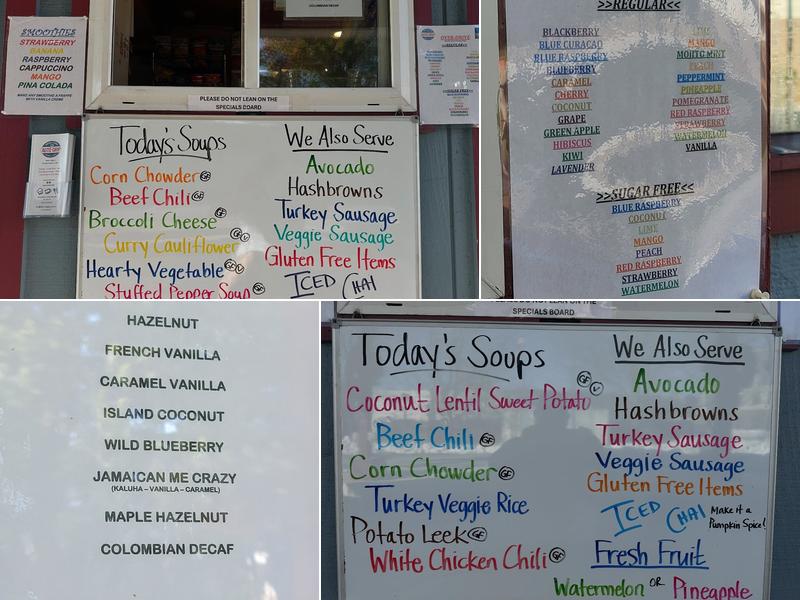 COLOMBIAN DECAF
SMOOTHIES
STRAWBERRY
BANANA
RASPBERRY
CAPPUCCINO
MANGO
PINA COLADA
MAKE ANY SMOOTHIE A FRAPPE
WITH VANILLA CREME
PLEASE DO NOT LEAN ON THE
SPECIALS BOARD
Today's Soups
Corn Chowder GF
Beef Chili GF
Broccoli Cheese GF
Curry Cauliflower GF V
Hearty Vegetable GF V
Stuffed Pepper Soup GF
We Also Serve
Avocado
Hashbrowns
Turkey Sausage
Veggie Sausage
Gluten Free Items
ICED CHAI
>>REGULAR<<
BLACKBERRY
BLUE CURACAO
BLUE RASPBERRY
BLUEBERRY
CARAMEL
CHERRY
COCONUT
GRAPE
GREEN APPLE
HIBISCUS
KIWI
LAVENDER
LIME
MANGO
MOJITO MINT
PEACH
PEPPERMINT
PINEAPPLE
POMEGRANATE
RED RASPBERRY
STRAWBERRY
WATERMELON
VANILLA
>>SUGAR FREE<<
BLUE RASPBERRY
COCONUT
LIME
MANGO
PEACH
RED RASPBERRY
STRAWBERRY
WATERMELON
HAZELNUT
FRENCH VANILLA
CARAMEL VANILLA
ISLAND COCONUT
WILD BLUEBERRY
JAMAICAN ME CRAZY
(KALUHA – VANILLA – CARAMEL)
MAPLE HAZELNUT
COLOMBIAN DECAF
PLEASE DO NOT LEAN ON THE
SPECIALS BOARD
Today's Soups
Coconut Lentil Sweet Potato GF V
Beef Chili GF
Corn Chowder GF
Turkey Veggie Rice
Potato Leek GF
White Chicken Chili GF
We Also Serve
Avocado
Hashbrowns
Turkey Sausage
Veggie Sausage
Gluten Free Items
ICED CHAI Make it a
Pumpkin Spice!
Fresh Fruit
Watermelon OR Pineapple